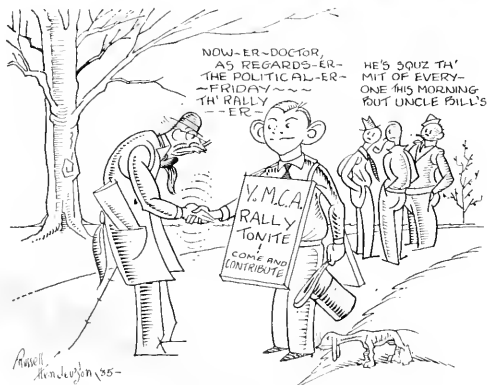 NOW-ER-DOCTOR,
AS REGARDS-ER-
THE POLITICAL-ER-
~FRIDAY~~~
TH' RALLY
--ER-
HE'S SQUZ TH'
MIT OF EVERY-
ONE THIS MORNING
BUT UNCLE BILL'S
Y.M.C.A.
RALLY
TONITE
COME AND
CONTRIBUTE
Russell
Henderson '35-